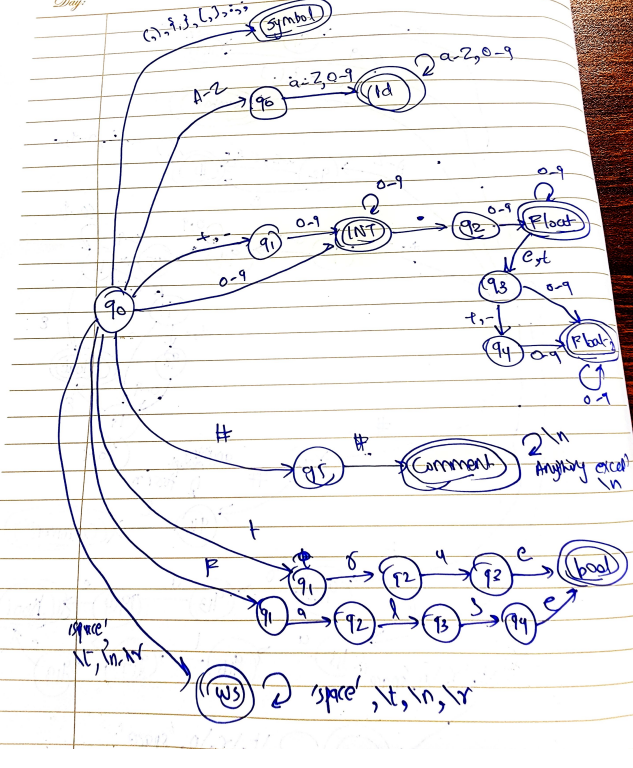 Day:
(,),{,},[,],:,;
Symbol
A-Z
q6
a-z,0-9
Id
a-z,0-9
0-9
0-9
+,-
q1
0-9
INT
.
q2
0-9
Float
0-9
e,t
q0
q3
0-9
+,-
q4
0-9
Float
0-9
#
q5
#
Comment
\n
Anything except
\n
t
F
q1
r
q2
u
q3
e
bool
q1
a
q2
l
q3
s
q4
e
'space',
\t,\n,\r
WS
'space',\t,\n,\r